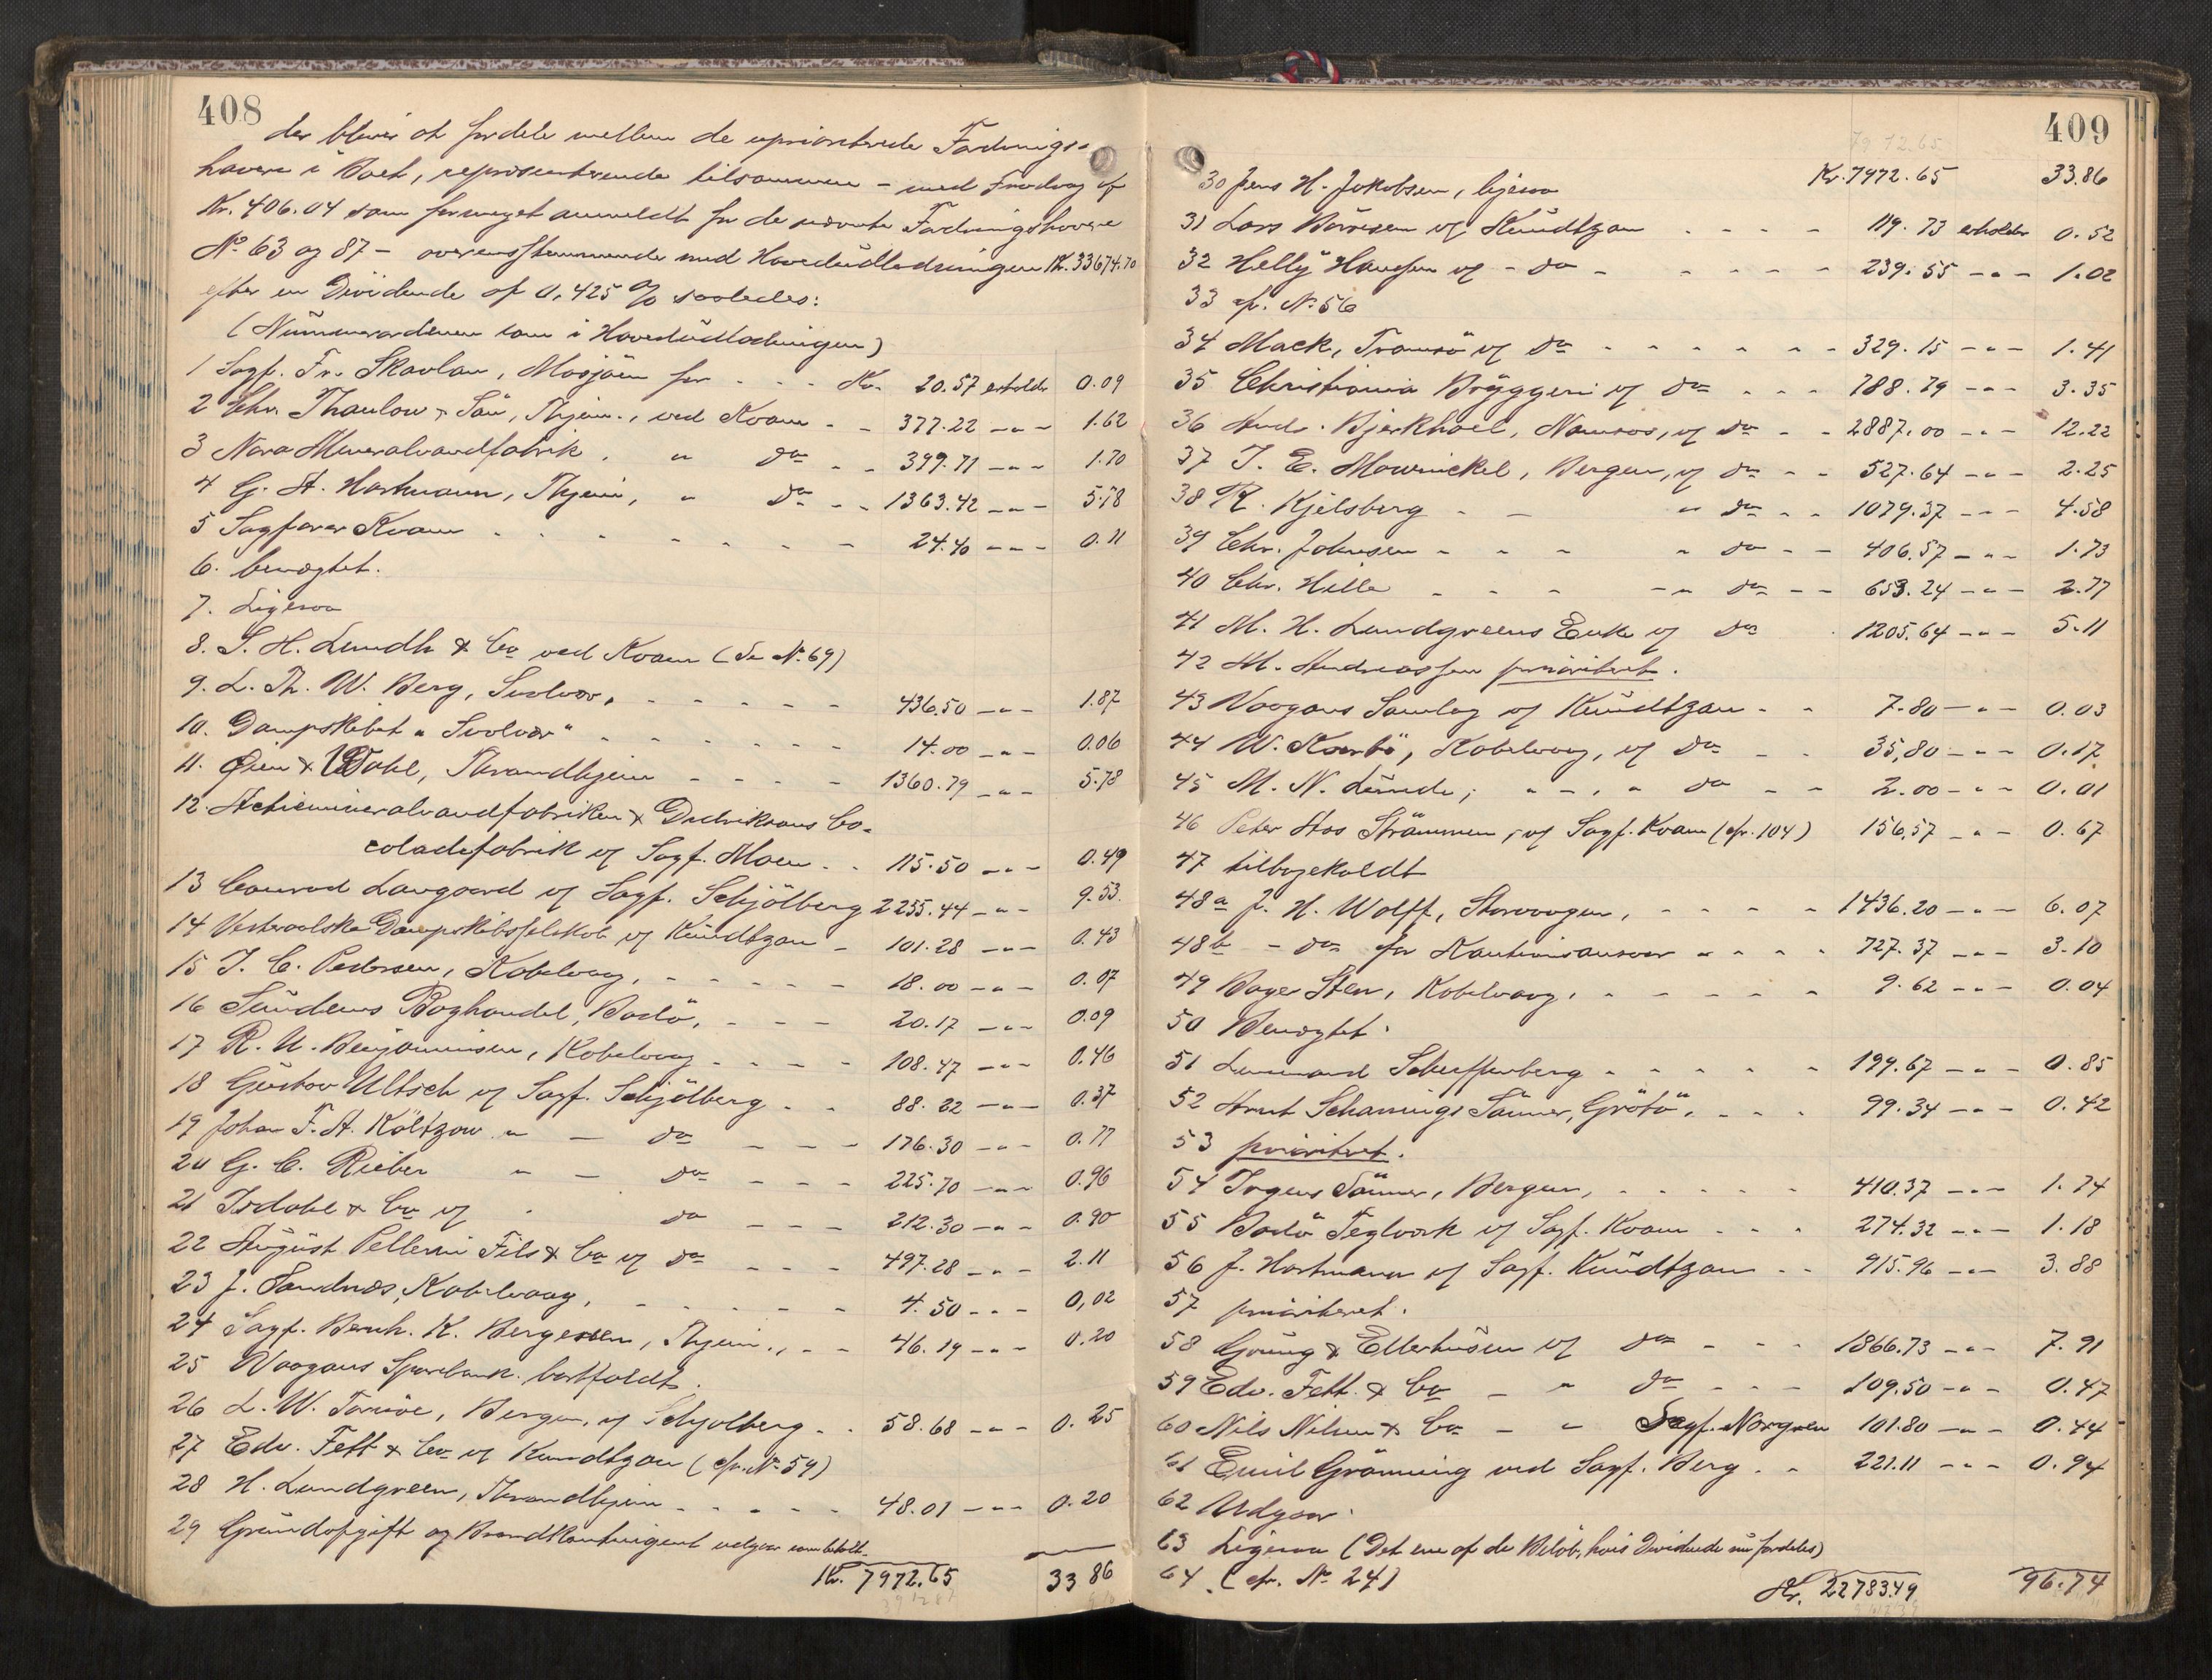 408
der bliver at fordele mellem de uprioriterede Fordrings-
havere i Boet, repræsenterende tilsammen - med Fradrag af
Kr. 406.04 som formeget anmeldt for de nævnte Fordringshavere
No 63 og 87 - overensstemmende med Hovedudlodningen Kr. 33674.70
efter en Dividende af 0,425 % saaledes:
(Nummerordenen som i Hovedudlodningen)
1 Sagf. Fr. Skavlan, Mosjøen for - - - Kr. 20.57 erholder 0.09
2 Chr. Thaulow & Søn, Thjem., ved Kvam - - 377.22 -"- 1.62
3 Nora Mineralvandfabrik . " do - - 399.71 -"- 1.70
4 G. A. Hartmann, Thjem, " do - - 1363.42 -"- 5.78
5 Sagfører Kvam - - - - - - - 24.40 -"- 0.11
6. benægtet.
7. Ligesaa
8. S. H. Lundh & Co ved Kvam (Se No. 69)
9. L. Th. W. Berg, Svolvær, - - - - - 436.50 -"- 1.87
10. Dampskibet "Svolvær" - - - - - - 14.00 -"- 0.06
11. Øien & Wahl, Throndhjem - - - - 1360.79 -"- 5.78
12. Actiemineralvandfabriken & Didriksons Co-
coladefabrik v/ Sagf. Moen - - 115.50 -"- 0.49
13 Conrad Langaard v/ Sagf. Schjølberg 2255.44 -"- 9.53.
14 Vesteraalske Dampskibsselskab v/ Kundtzon - 101.28 -"- 0.43
15 J. C. Pedersen, Kabelvaag, - - - - - 18.00 -"- 0.07
16 Sundens Boghandel, Bodø, - - - 20.17 -"- 0.09
17 R. U. Benjaminsen, Kabelvaag - - - - 108.47 -"- 0.46
18 Gustav Ultsch v/ Sagf. Schjølberg - - 88.22 -"- 0.37
19 Johan F. A. Költzow " - do - - - 176.30 -"- 0.77
20 G. C. Rieber " - do - - - 225.70 -"- 0.96
21 Isdahl & Co v/ - do - - - 212.30 -"- 0.90
22 August Pellerin Fils & Co v/ do - - - 497.28 -"- 2.11
23 J. Sandnæs, Kabelvaag, - - - - - 4.50 -"- 0,02
24 Sagf. Bernh. K. Bergersen, Thjem., - - 46.19 -"- 0.20
25 Vaagans Sparebank. bortfaldt.
26 L. W. Torsøe, Bergen, v/ Schjølberg - - 58.68 -"- 0.25
27 Edv. Fett & Co v/ Kundtzon (cfr. No. 59)
28 H. Lundgreen, Throndhjem - - - - - 48.01 -"- 0.20
29 Grundafgift og Brandkontingent udgaar som betalt.
Kr. 7972.65 33 86
409
30 Jens H. Jakobsen, ligesaa Kr. 7972.65 33.86
31 Lars Børresen v/ Kundtzon - - - - 119.73 erholder 0.52
32 Helly Hansen v/ - do - - - - - - 239.55 -"- 1.02
33 cfr. No. 56
34 Mack, Tromsø v/ do - - - - - - 329.15 -"- 1.41
35 Christiania Bryggeri v/ do - - - 788.79 -"- 3.35
36 Andr. Bjerkhoel, Namsos, v/ do - - 2887.00 -"- 12.22
37 J. E. Mowinckel, Bergen, v/ do - - 527.64 -"- 2.25
38 R. Kjelsberg - - " do - - 1079.37 -"- 4.58
39 Chr. Johnsen - - - " do - - 406.57 -"- 1.73
40 Chr. Hille - - - " do - - 653.24 -"- 2.77
41 M. H. Lundgreens Enke v/ do - 1205.64 -"- 5.11
42 M. Andreassen prioriteret.
43 Vaagans Samlag v/ Kundtzon - - 7.80 -"- 0.03
44 W. Kaarbø, Kabelvaag, v/ do - - 35,80 -"- 0.17.
45 M. N. Lunde, " - . " do - - 2.00 -"- 0.01
46 Peter Aas Strømmen, v/ Sagf. Kvam (cfr. 104) 156,57 -"- 0.67
47 tilbagekaldt
48a J. H. Wolff, Storvaagen, - - - - 1436.20 -"- 6.07
48b - do for Kautionsansvar - - - - 727.37 -"- 3.10
49 Bager Sten, Kabelvaag, - - - - - 9.62 -"- 0.04
50 Benægtet.
51 Lensmand Scheffenberg - - - - - 199.67 -"- 0.85
52 Arnt Schønings Sønner, Grøtø, - - - 99.34 -"- 0.42
53 prioriteret.
54 Irgens Sønner, Bergen, - - - - - 410.37 -"- 1.74
55 Bodø Teglværk v/ Sagf. Kvam - - - 274.32 -"- 1.18
56 J. Hartmann v/ Sagf. Kundtzon - - 915.96 -"- 3.88
57 prioriteret.
58 Grung & Ellerhusen v/ do - - - 1866.73 -"- 7.91
59 Edv. Fett & Co - " do - - - 109.50 -"- 0.47
60 Nils Nilsen & Co - " Sagf. Norgren 101.80 -"- 0.44
61 Emil Grønning ved Sagf. Berg - - 221.11 -"- 0.94
62 Udgaar.
63 Ligesaa (Det ene af de Beløb, hvis Dividende nu fordeles)
64 (cfr. No. 24) Kr. 22783.49 96.74